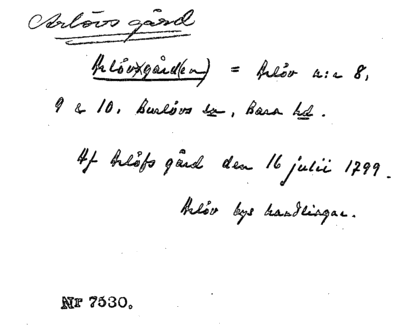 Arlövs gård
Arlövsgård(en) = Arlöv n:r 8,
9 & 10, Burlövs sn, Bara hd.
Af Arlöfs gård den 16 julii 1799.
Arlöv bys handlingar.
Nr 7530.